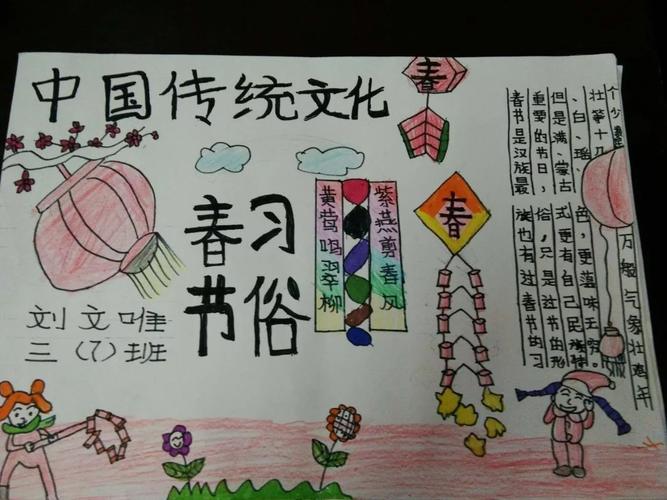 中国传统文化
春
春节
习俗
黄莺鸣翠柳
紫燕剪春风
春
刘文唯
三(7)班
春节是汉族最
重要的节日,
但是满、蒙古
、白、瑶、
壮等十几
个少
族也有过春节的习
俗,只是过节的形
式更有自己民族特
色,更蕴味无穷。
万般气象壮鸡年